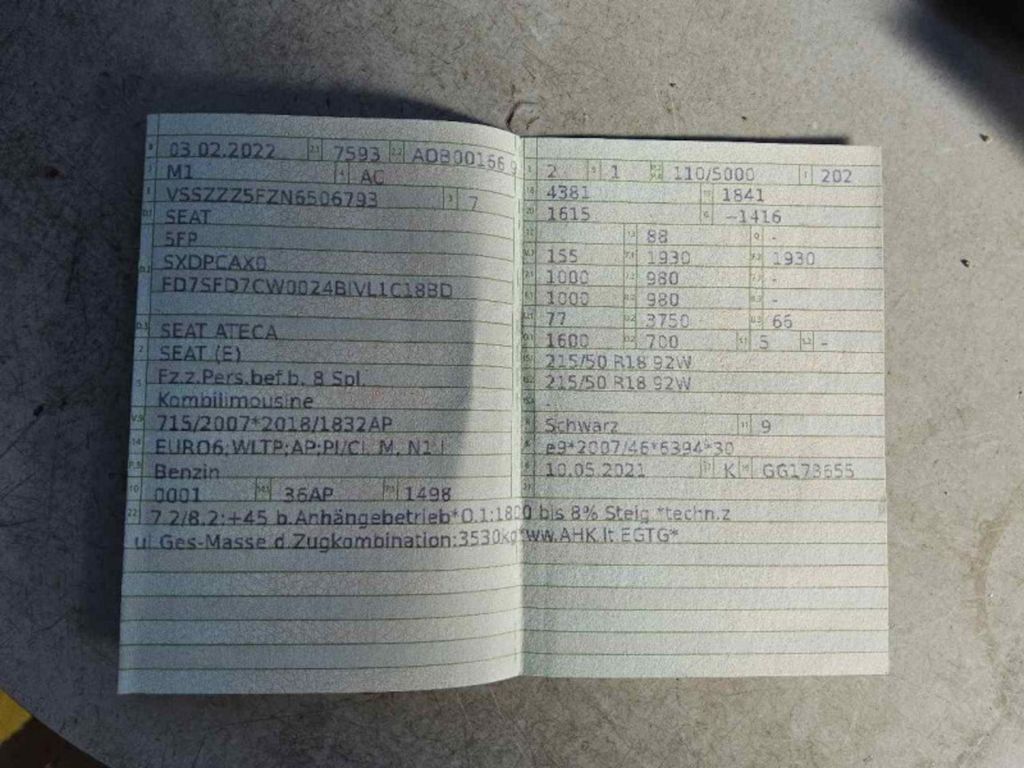 03.02.2022 7593 ADB00166 9
M1 AC
VSSZZZ5FZN6506793 7
SEAT
5FP
SXDPCAX0
FD7SFD7CW0024BIVL1C18BD
SEAT ATECA
SEAT (E)
Fz.z.Pers.bef.b. 8 Spl.
Kombilimousine
715/2007*2018/1832AP
EURO6;WLTP;AP;PI/CI, M, N1 I
Benzin
0001 36AP 1498
2 1 110/5000 202
4381 1841
1615 -1416
88 -
155 1930 1930
1000 980 -
1000 980 -
77 3750 66
1600 700 5 -
215/50 R18 92W
215/50 R18 92W
-
Schwarz 9
e9*2007/46*6394*30
10.05.2021 K GG173655
7.2/8.2:+45 b.Anhängebetrieb*O.1:1800 bis 8% Steig.*techn.z
ul Ges-Masse d.Zugkombination:3530kg*ww.AHK lt.EGTG*